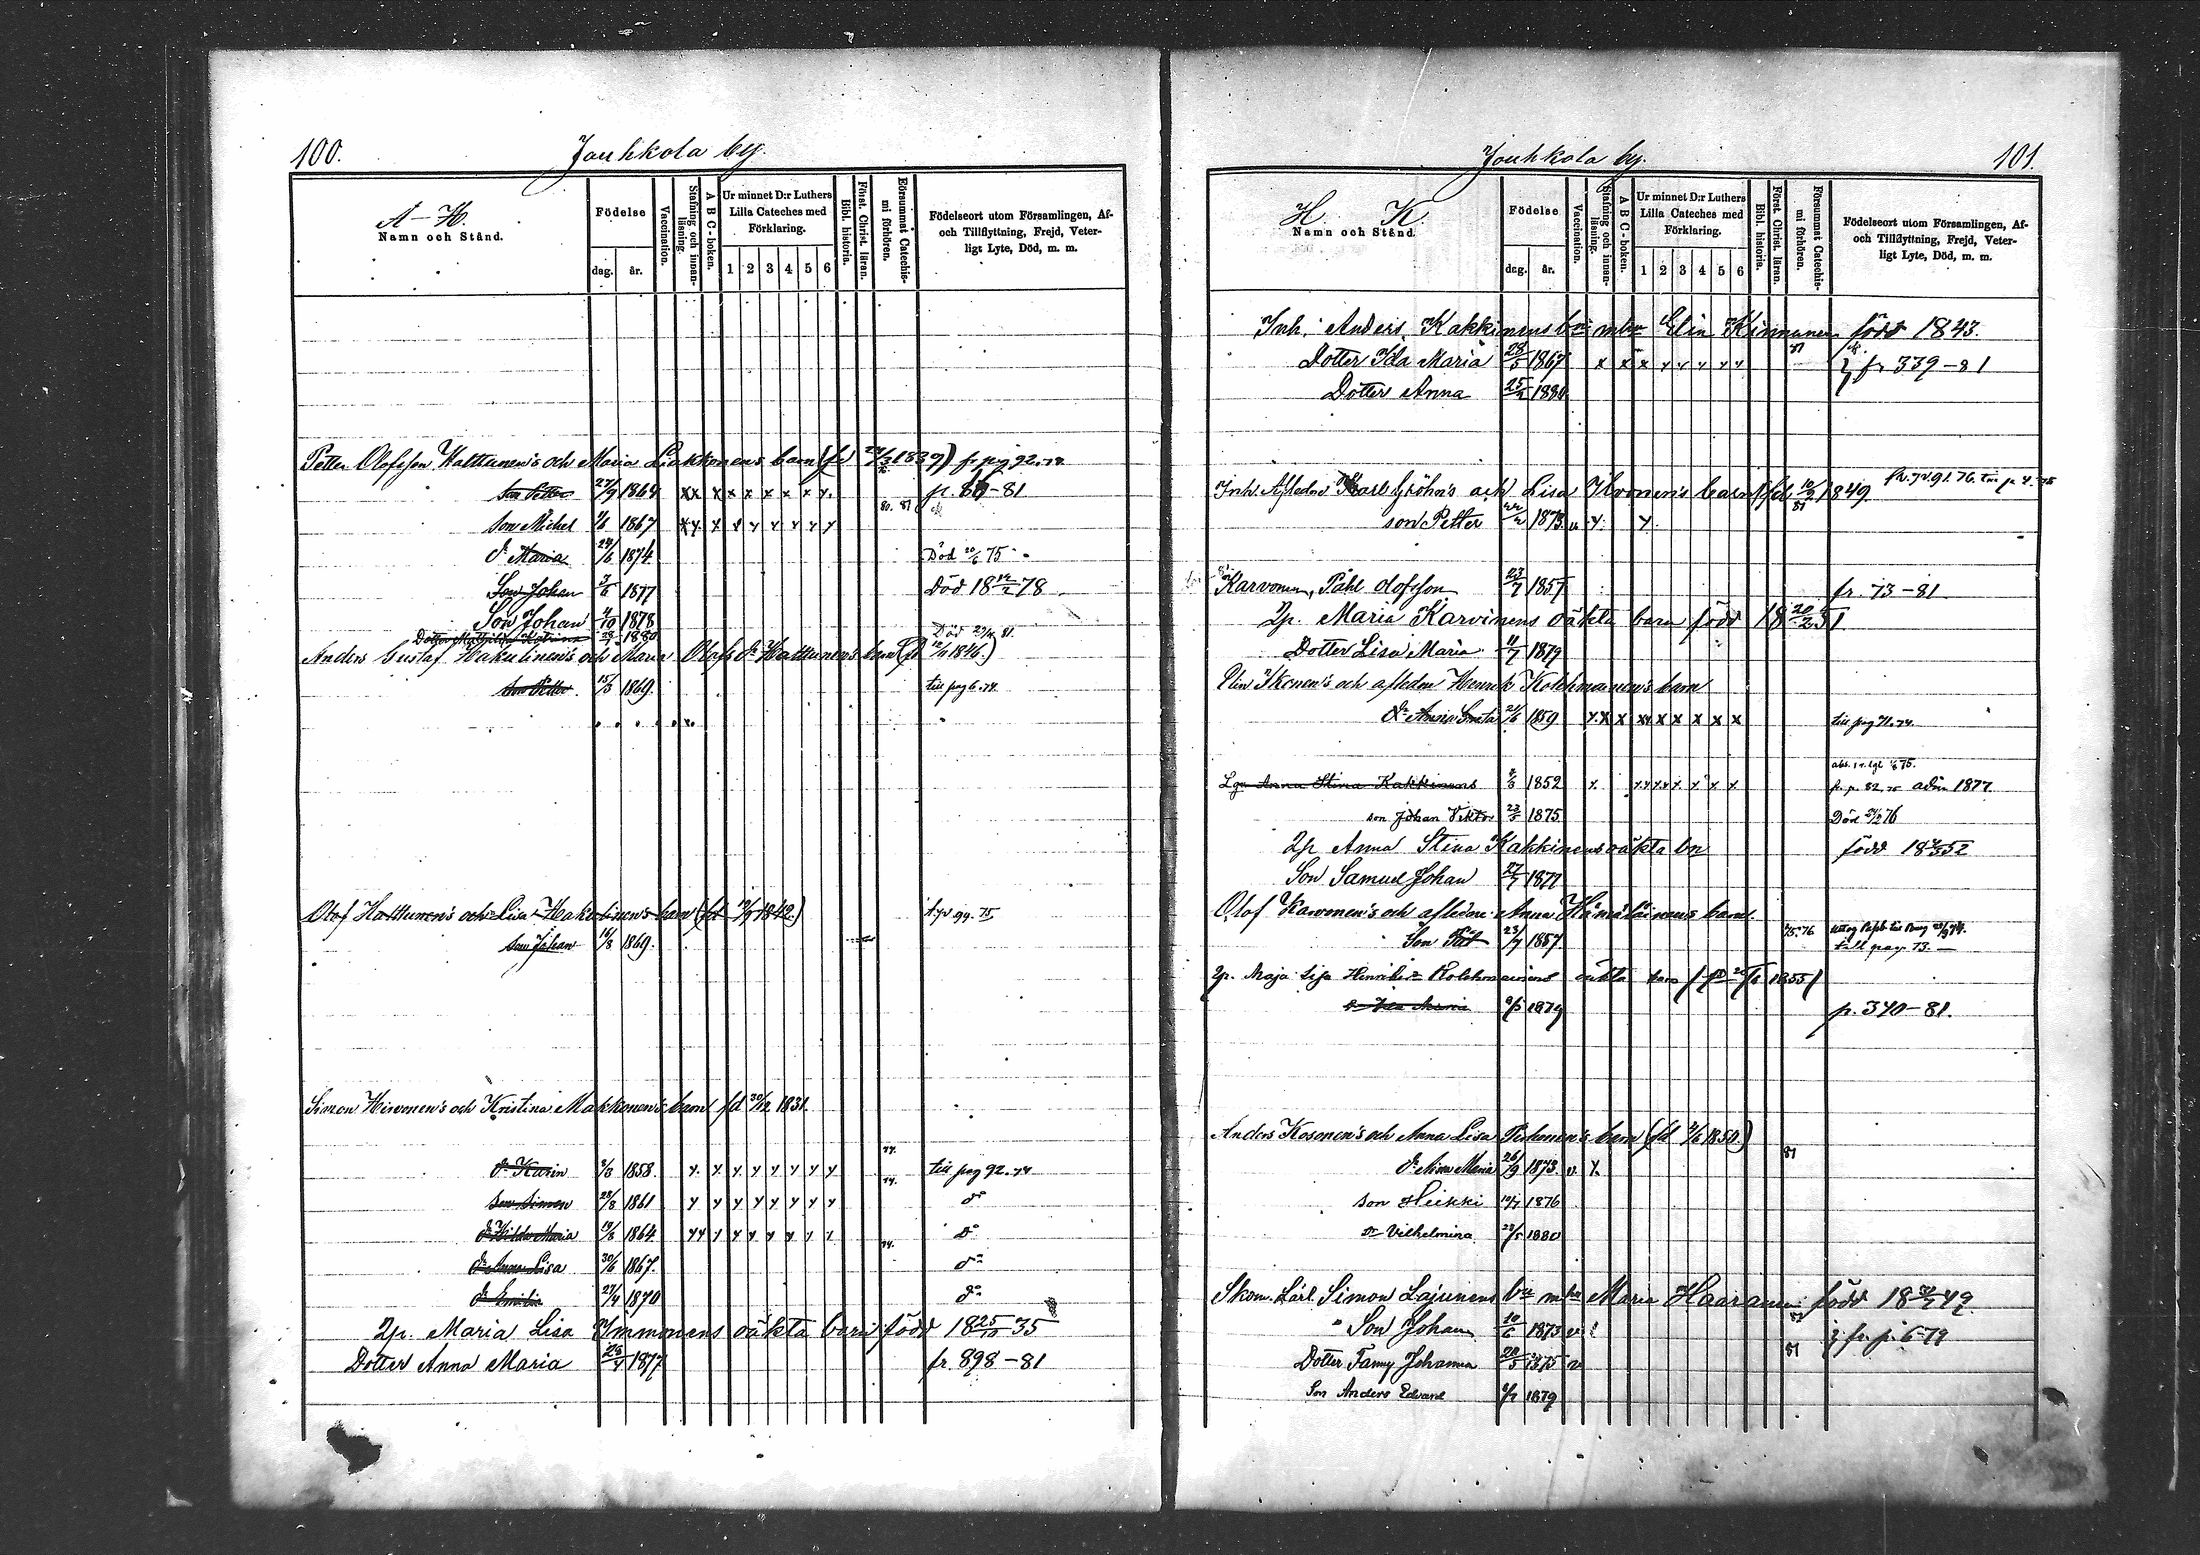 100.
Jouhkola by.
A–H.
Namn och Stånd.
Födelse
dag. år.
Vaccination.
Stafning och innanläsning.
A B C-boken.
Ur minnet D:r Luthers
Lilla Cateches med
Förklaring.
1 2 3 4 5 6
Bibl. historia.
Först. Christ. läran.
Försummat Catechismi förhören.
Födelseort utom Församlingen, Af-
och Tillflyttning, Frejd, Veter-
ligt Lyte, Död, m. m.
Petter Olofsson Hattunen's och Maria Liakkonens barn (fd 1839) fr pag 92.74
son Petter 27/9 1864 xx x x x x x x x. p. 80-81
son Michel 1867 xx x x x x x x x 80. 81
dr Maria 24/6 1874 Död 20/6 75
Son Johan 3/6 1877 Död 18 12/2 78
Son Johan 4/10 1878
Dotter Mathilda Katrina 1880 Död 81.
Anders Gustaf Hakulinen's och Maria Olofs dr Hattunen's barn (fd 1846.)
son Petter 15/3 1869. till pag 6.74
Olof Hattunen's och Lisa Hakulinen's barn (fd 1842.) 99. 75
son Johan 16/8 1869.
Simon Hirvonen's och Kristina Makkonen's barn fd 30/12 1831
dr Karin 2/3 1858. x x x x x x x x 74. till pag 92.74
son Simon 28/3 1861 x x x x x x x x 74. do
dr Hilda Maria 19/3 1864 xx x x x x x x do
dr Anna Lisa 30/6 1867. 74. do
dr Emilia 27/4 1870 do
Ip. Maria Lisa Immonens oäkta barn född 18 25/12 35
Dotter Anna Maria 23/4 1877 fr. 898-81
Jouhkola by.
101.
H K
Namn och Stånd.
Födelse
dag. år.
Vaccination.
Stafning och innanläsning.
A B C-boken.
Ur minnet D:r Luthers
Lilla Cateches med
Förklaring.
1 2 3 4 5 6
Bibl. historia.
Först. Christ. läran.
Försummat Catechismi förhören.
Födelseort utom Församlingen, Af-
och Tillflyttning, Frejd, Veter-
ligt Lyte, Död, m. m.
Inh. Anders Kakkinens bn m hu Elin Kinnunen född 1843.
Dotter Ida Maria 28/5 1867 x x x x x x x x 81 fr 339-81
Dotter Anna 1880
Inh. Afledne Karl Gröhn's och Lisa Ikonen's barn (fd 10/9 1849
son Petter 1873 v x x 81
Karvonen, Påhl Olofsson 23/7 1857 fr. 73-81
Ip. Maria Karvinens oäkta barn född 18 51.
Dotter Lisa Maria 1879
Elin Ikonen's och afledne Henrik Kolehmainen's barn
dr Anna Greta 21/6 1859 x x x xx x x x x x till pag 71.74.
Anna Stina Kakkinens 1852 x. x x x x x x x 82.75 adm 1877
son Johan Viktor 23/5 1875 Död 76
Ip Anna Stina Kakkinens oäkta bn född 18 52
Son Samuel Johan 27/7 1877
Olof Karvonen's och afledne Anna Hämäläinens barn.
Son Pål 23/7 1857. 75.76 till pag. 73.
Ip. Maja Lisa Henriksdr Kolehmainens oäkta barn (fd 1855)
1879 p. 340-81.
Anders Kosonen's och Anna Lisa Pirhonen's barn (fd 1850.)
dr Anna Maria 26/9 1873. v x 81
son Heikki 10/7 1876
dr Vilhelmina 28/5 1880
Skom. Lärl. Simon Lajunens bn m hu Maria Haaranen född 18 49.
Son Johan 10/6 1873 v fr. p. 6-79
Dotter Fanny Johanna 20/5 1875 v 81
Son Anders Edvard 1879